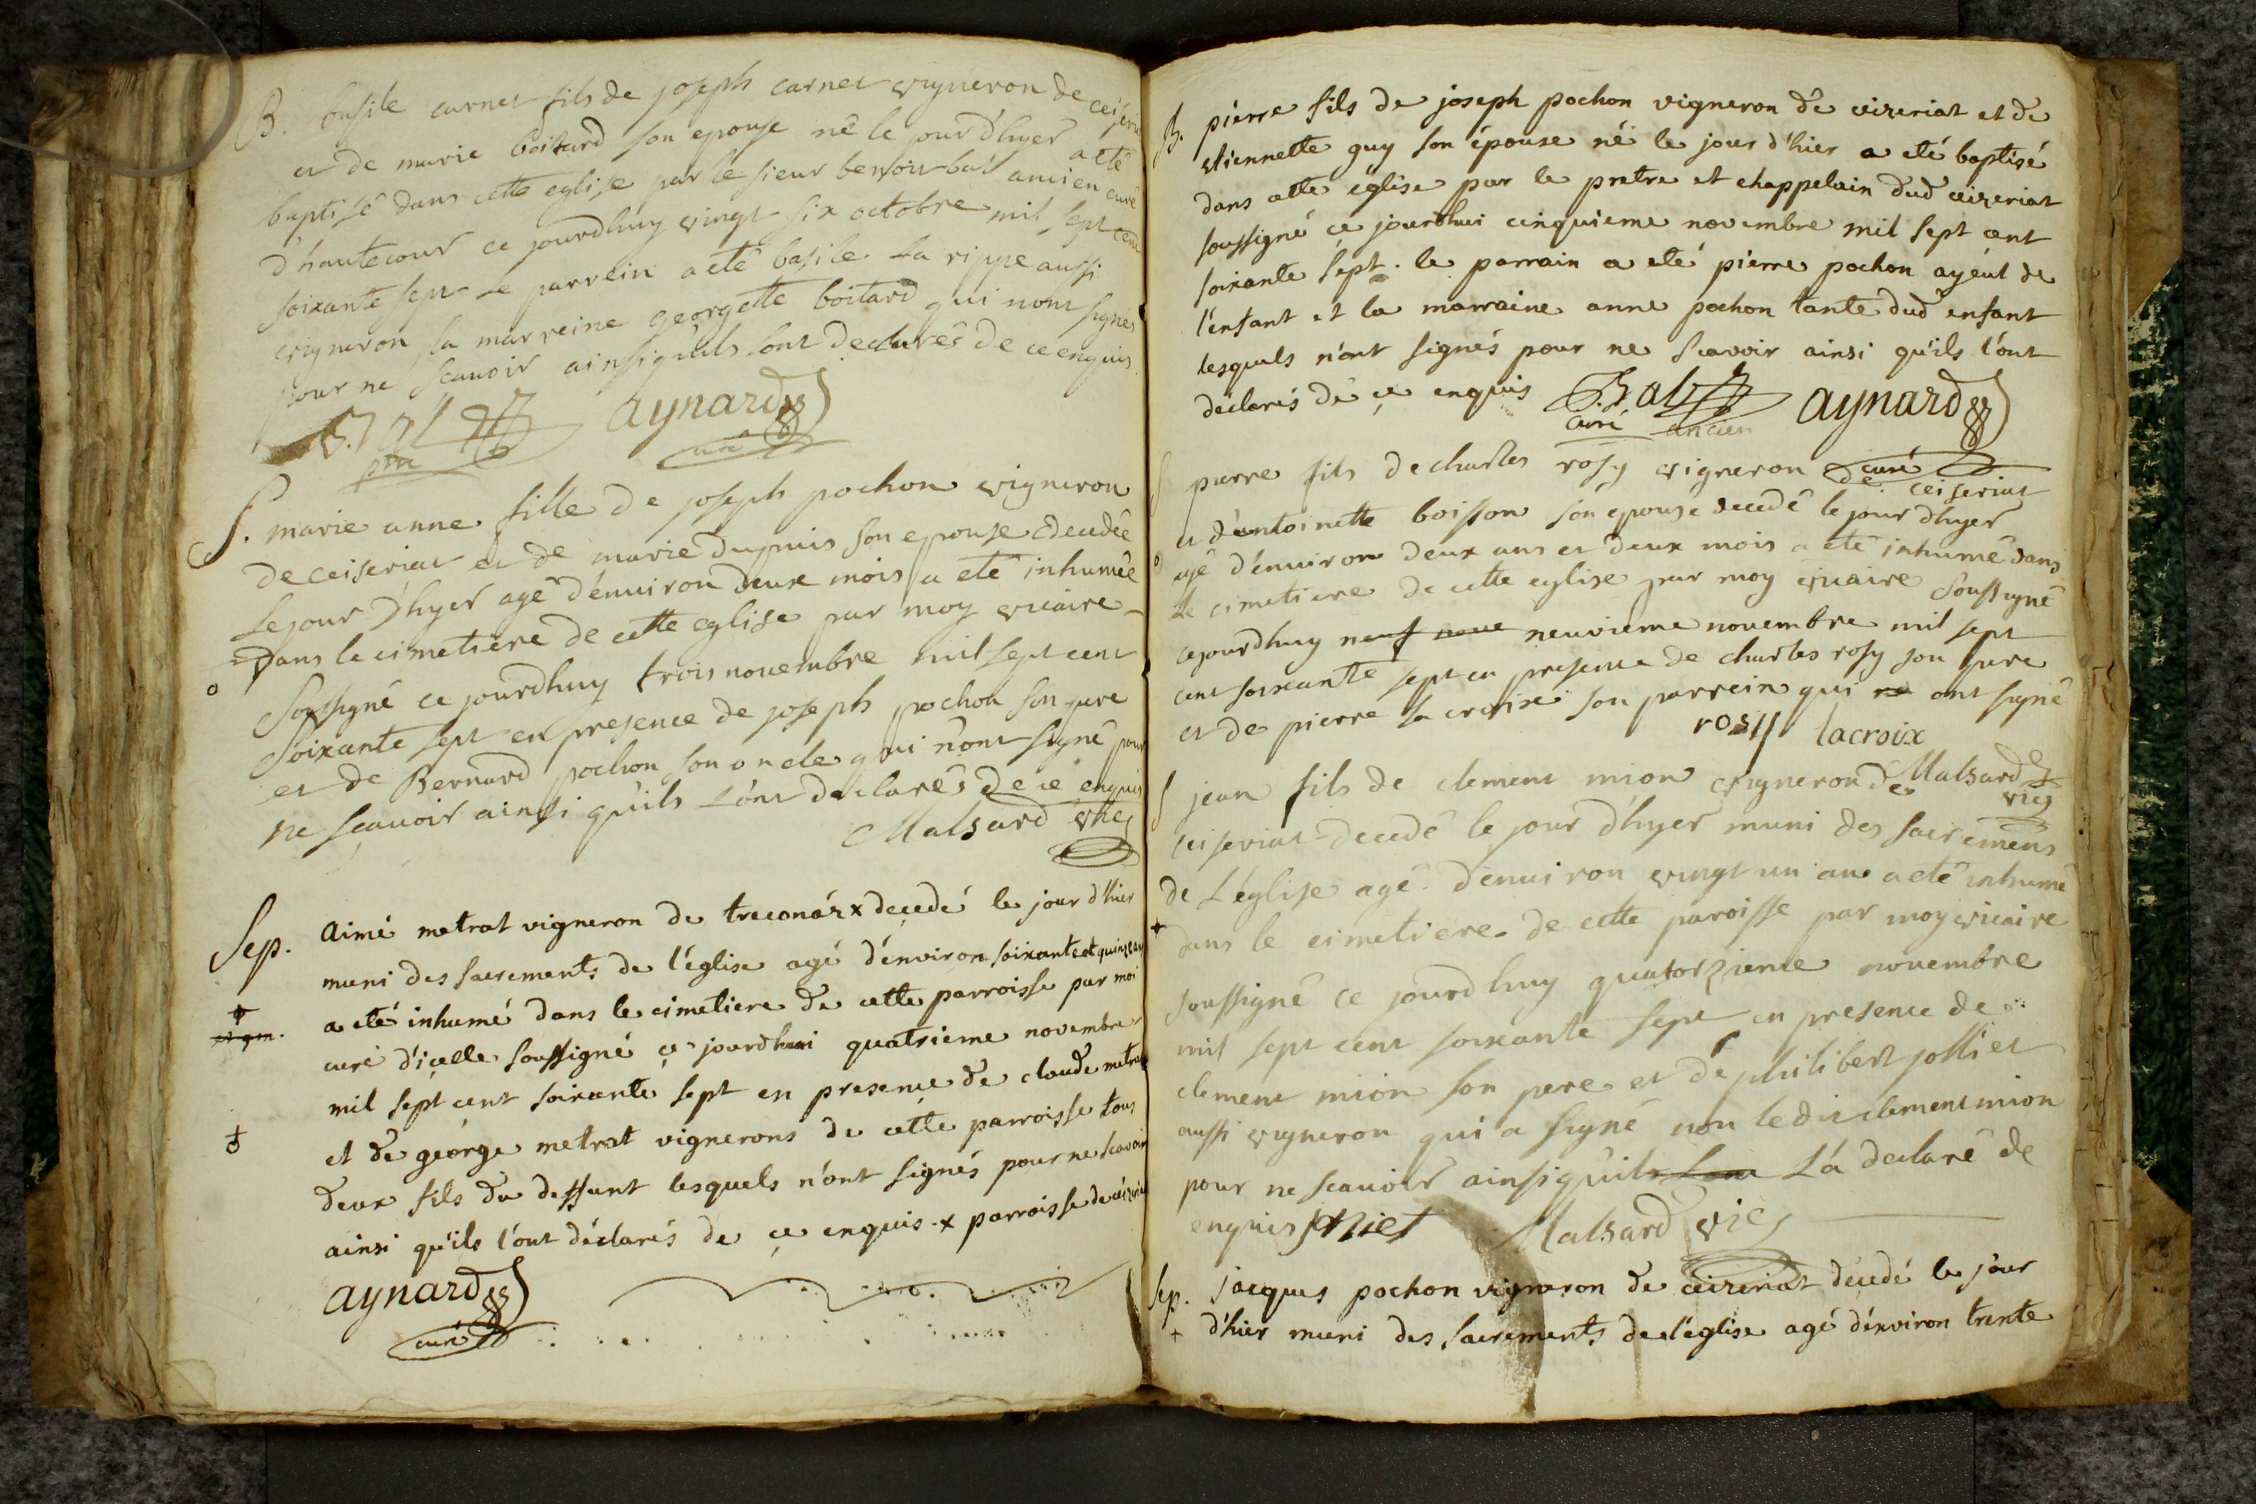 B. basile carnet fils de joseph carnet vigneron de ceiseria
et de marie boitard son epouse né le jour d'hyer a eté
baptisé dans cette eglise par le sieur benoit bal ancien curé
d'hautecour ce jourdhuy vingt six octobre mil sept cent
soixante sept le parrein a eté basile La rippe aussi
vigneron, la marreine georgette boitard qui n'ont signés
pour ne scavoir ainsi qu'ils l'ont declarés de ce enquis.
B. Bal aynard
ptre curé
S. marie anne fille de joseph pochon vigneron
de ceiseriat et de marie dupuis son epouse decedée
Le jour d'hyer agé d'environ deux mois a eté inhumée
Dans le cimetiere de cette eglise par moy vicaire
o Soussigné ce jourdhuy trois novembre mil sept cent
Soixante sept en presence de joseph pochon son pere
et de Bernard pochon son oncle qui n'ont signé pour
ne scavoir ainsi qu'ils L'ont declarés de ce enquis
Malsard vic
Sep. Aimé metrat vigneron de treconáz x decedé le jour d'hier
muni des sacrements de l'église agé d'énviron soixante et quinze ans
a eté inhumé dans le cimetiere de cette parroisse par moi
curé d'icelle soussigné ce jourdhui quatrieme novembre
mil sept cent soixante sept en presence de claude metrat
et de george metrat vignerons de cette parroisse tous
deux fils du deffunt lesquels n'ont signés pour ne scavoir
ainsi qu'ils l'ont déclarés de ce enquis. x parroisse de ceizeria
aynard
curé
B. pierre fils de joseph pochon vigneron de ceizeriat et de
etiennette guy son épouse né le jour d'hier a eté baptisé
dans cette église par le pretre et chappelain dud ceizeriat
soussigné ce jourdhui cinquieme novembre mil sept cent
soixante sept. le parrain a eté pierre pochon ayeul de
l'enfant et la marraine anne pochon tante dud enfant
lesquels n'ont signés pour ne scavoir ainsi qu'ils l'ont
déclarés de ce enquis B. Bal aynard
curé ancien
curé
S pierre fils de charles rosy vigneron de ceiseriat
et d'antoinette boisson son epouse decedé le jour d'hyer
o agé d'environ deux ans et deux mois a eté inhumé dans
Le cimetiere de cette eglise par moy vicaire soussigné
cejourdhuy neuf nove neuvieme novembre mil sept
cent soixante sept en presence de charles rosy son pere
et de pierre la croixé son parrein qui ne ont signé
rosy lacroix
Malsard
vic
S jean fils de clement mion vigneron de
ceiseriat decedé le jour d'hyer muni des sacremens
de L'église agé d'environ vingt un an a eté inhumé
dans le cimetiere de cette paroisse par moy vicaire
soussigné ce jourdhuy quatorzieme novembre
mil sept cent soixante sept en presence de
clement mion son pere et de philibert jolliet
aussi vigneron qui a signé non ledit clement mion
pour ne scavoir ainsi qu'ils L'a declaré de
enquis Malsard vic
Sep. jacques pochon vigneron de ceizeriat décedé le jour
+ d'hier muni des sacrements de l'église agé d'énviron trente